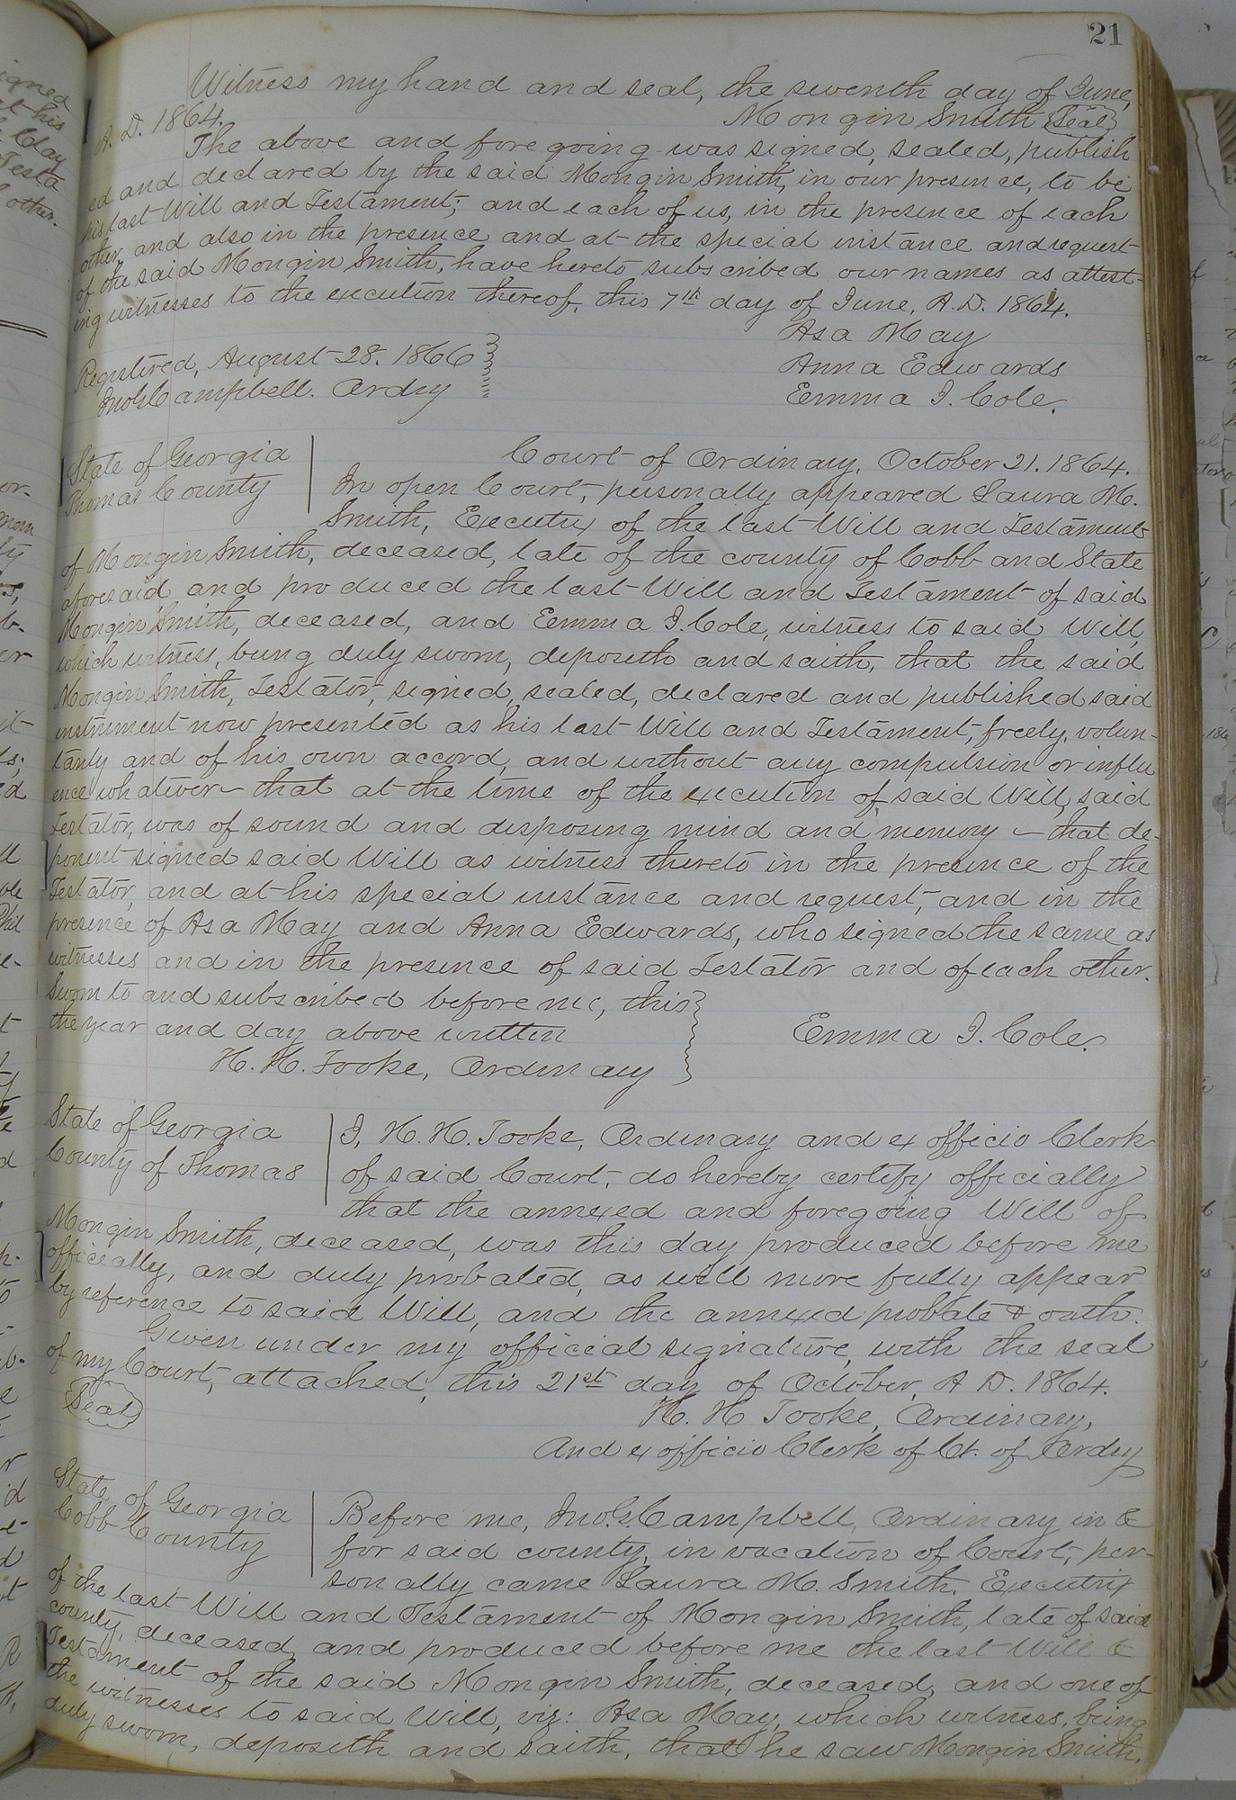 21
Witness my hand and seal, the seventh day of June,
A.D. 1864. Mongin Smith Seal
The above and foregoing was signed, sealed, publish
ed and declared by the said Mongin Smith, in our presence, to be
his last Will and Testament; and each of us, in the presence of each
other, and also in the presence and at the special instance and request
of the said Mongin Smith, have hereto subscribed our names as attest-
ing witnesses to the execution thereof, this 7th day of June, A.D. 1864.
Asa May
Registered, August 28. 1866 Anna Edwards
Jno. G. Campbell. Ordry Emma I. Cole.
State of Georgia Court of Ordinary, October 21. 1864.
Thomas County In open Court, personally appeared Laura M.
Smith, Executrix of the last Will and Testament
of Mongin Smith, deceased, late of the county of Cobb and State
aforesaid and produced the last Will and Testament of said
Mongin Smith, deceased, and Emma I. Cole, witness to said Will,
which witness, being duly sworn, deposeth and saith, that the said
Mongin Smith, Testator, signed, sealed, declared and published said
instrument now presented as his last Will and Testament, freely, volun-
tarily and of his own accord, and without any compulsion or influ
ence whatever - that at the time of the execution of said Will, said
Testator, was of sound and disposing mind and memory - that de-
ponent signed said Will as witness thereto in the presence of the
Testator, and at his special instance and request, and in the
presence of Asa May and Anna Edwards, who signed the same as
witnesses and in the presence of said Testator and of each other.
Sworn to and subscribed before me, this
the year and day above written Emma I. Cole.
H. H. Tooke, Ordinary
State of Georgia I, H. H. Tooke, Ordinary and ex officio Clerk
County of Thomas of said Court, do hereby certify officially
that the annexed and foregoing Will of
Mongin Smith, deceased, was this day produced before me
officially, and duly probated, as will more fully appear
by reference to said Will, and the annexed probate & oath.
Given under my official signature, with the seal
of my Court, attached, this 21st day of October, A D. 1864.
Seal H. H Tooke, Ordinary,
And ex officio Clerk of Ct. of Ordry
State of Georgia Before me, Jno. G. Campbell, Ordinary in &
Cobb County for said county, in vacation of Court, per-
sonally came Laura M. Smith, Executrix
of the last Will and Testament of Mongin Smith, late of said
county, deceased, and produced before me the last Will &
Testament of the said Mongin Smith, deceased, and one of
the witnesses to said Will, viz: Asa May, which witness, being
duly sworn, deposeth and saith, that he saw Mongin Smith,